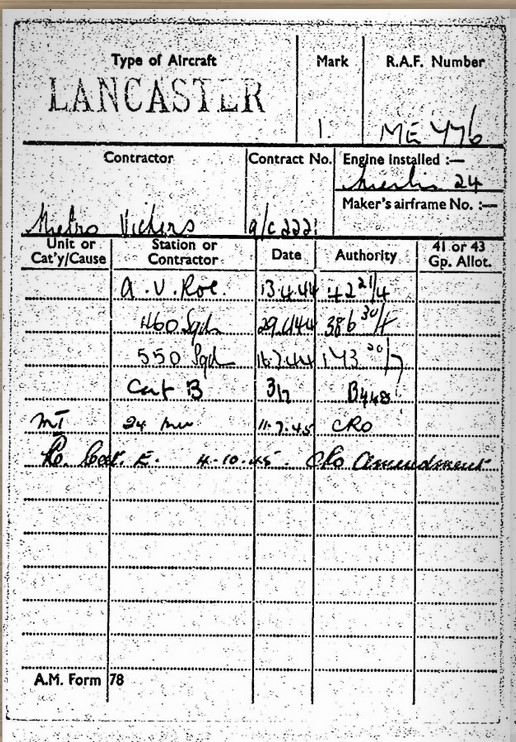 Type of Aircraft Mark R.A.F. Number
LANCASTER 1. ME 776
Contractor Contract No. Engine installed :—
Merlin 24
Maker's airframe No. :—
Metro Vickers a/c 222
Unit or Cat'y/Cause Station or Contractor Date Authority 41 or 43 Gp. Allot.
A.V. Roe 13.4.44 42 21/4
460 Sqd 386 30/4
550 Sqd 143 20/7
Cat B 3/7 B448
MT 24 MU 11.7.45 CRO
Cat. E. 4-10-45. CRO Amendment
A.M. Form 78